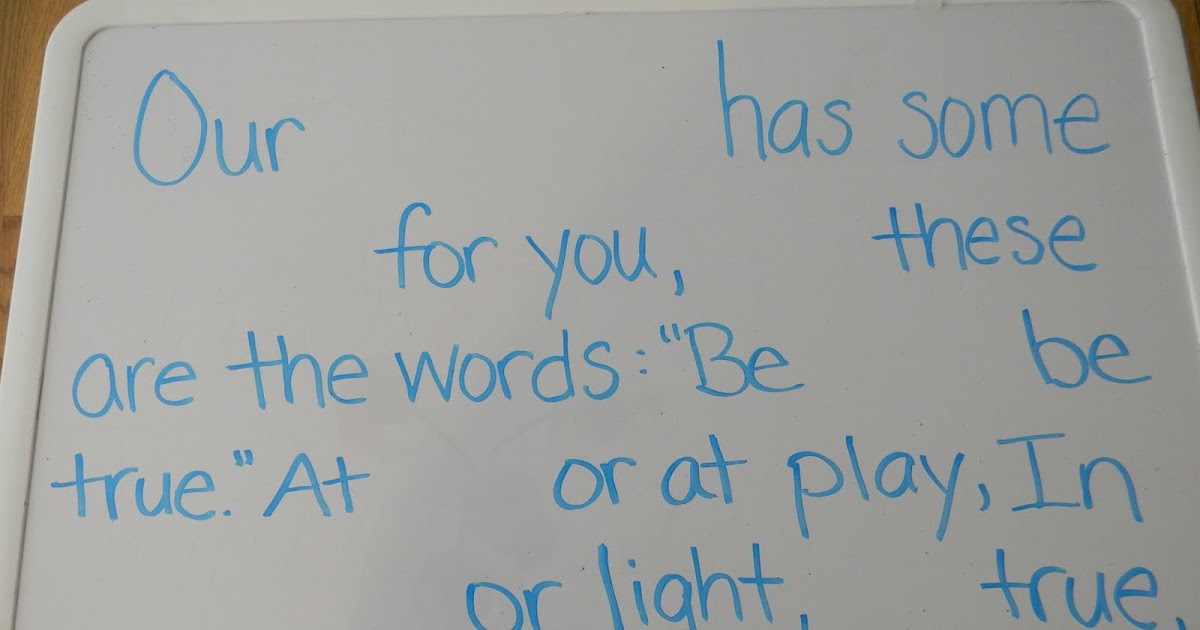 Our has some
for you, these
are the words: "Be be
true." At or at play, In
or light, true,